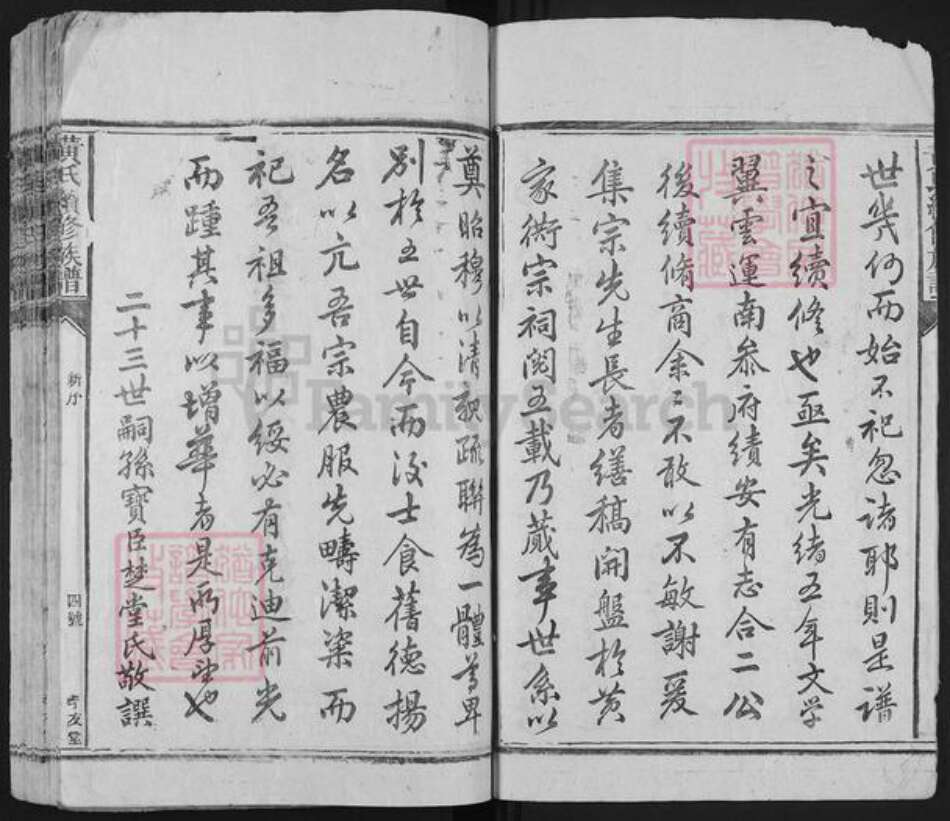 世幾何而始不祀忽諸耶則是譜
之宜續修也亟矣光緒五年文學
翼雲運南參府績安有志合二公
後續脩商余余不敢以不敏謝爰
集宗先生長者繕稿開盤於黃
家衖宗祠閱五載乃蕆事世系以
奠昭穆以清親疏聯為一體尊卑
別於五世自今而後士食舊德揚
名以亢吾宗農服先疇潔粢而
祀吾祖多福以綏必有克迪前光
而踵其事以增華者是所厚望也
二十三世嗣孫寶臣楚堂氏敬譔
黃氏續修族譜
新序
四號
孝友堂
FamilySearch